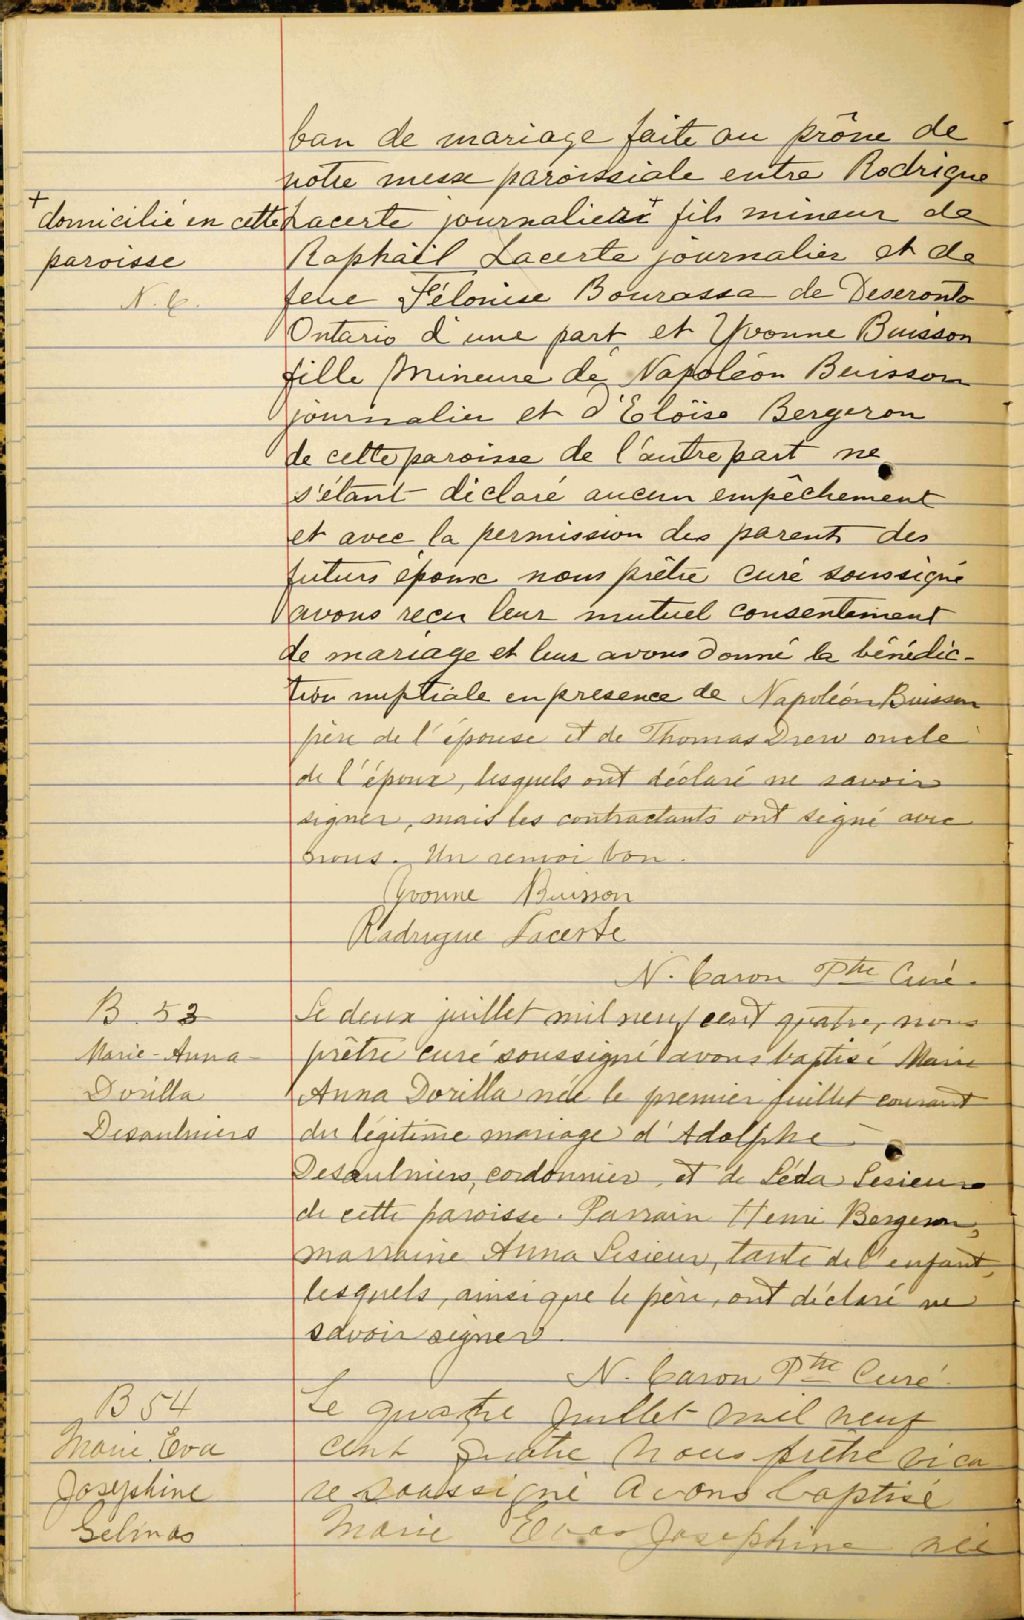 ban de mariage faite au prône de
notre messe paroissiale entre Rodrigue
+
domicilié en cette
paroisse
N. C.
Lacerte journalier + fils mineur de
Raphaël Lacerte journalier et de
feue Félonise Bourassa de Deseronto
Ontario d'une part et Yvonne Buisson
fille Mineure de Napoléon Buisson
journalier et d'Eloïse Bergeron
de cette paroisse de l'autre part ne
s'étant déclaré aucun empêchement
et avec la permission des parents des
futurs époux nous prêtre curé soussigné
avons reçu leur mutuel consentement
de mariage et leur avons donné la bénédic-
tion nuptiale en presence de Napoléon Buisson
père de l'épouse et de Thomas Drew oncle
de l'époux, lesquels ont déclaré ne savoir
signer, mais les contractants ont signé avec
nous. Un renvoi bon.
Yvonne Buisson
Radrugue Lacerte
N. Caron Ptre Curé.
B. 53
Marie-Anna-
Dorilla
Desaulniers
Le deux juillet mil neuf cent quatre, nous
prêtre curé soussigné avons baptisé Marie
Anna Dorilla née le premier juillet courant
du légitime mariage d'Adolphe -
Desaulniers, cordonnier, et de Léda Lesieur
de cette paroisse. Parrain Henri Bergeron,
marraine Anna Lesieur, tante de l'enfant,
lesquels, ainsi que le père, ont déclaré ne
savoir signer.
N. Caron Ptre Curé.
B 54
Marie Eva
Josephine
Gelinas
Le quatre Juillet mil neuf
cent quatre nous prêtre vicai
re soussigné avons baptisé
Marie Eva Josephine née